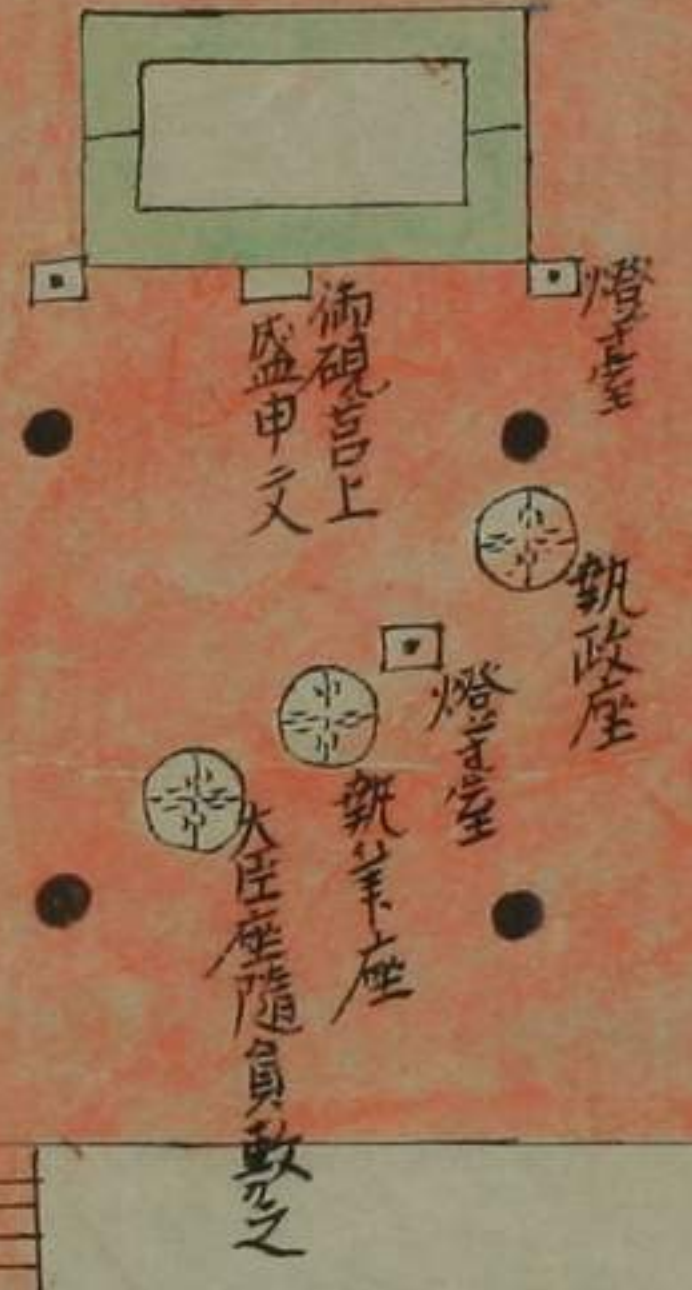 燈臺
御硯筥上
盛申文
執政座
燈臺
執筆座
大臣座隨員數之